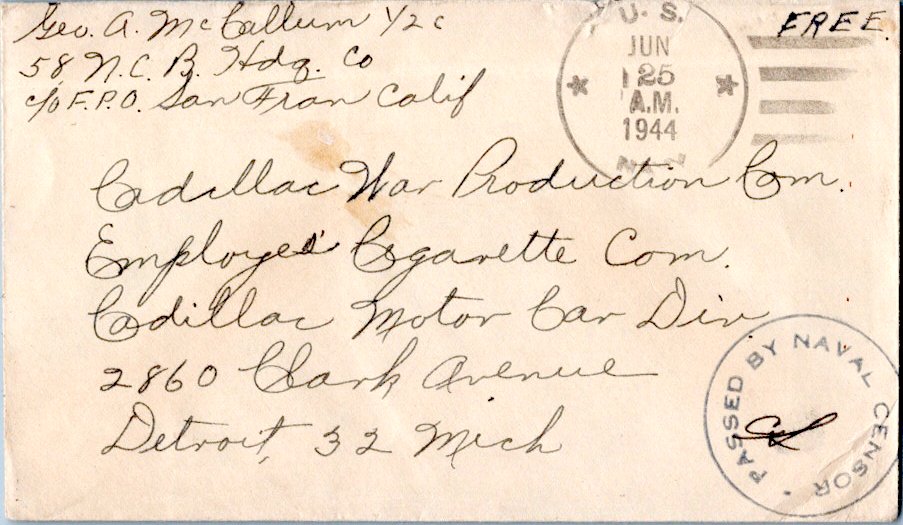 Geo. A. McCallum 1/2c
58 N.C.B. Hdq. Co
c/o F.P.O. San Fran Calif
U. S.
JUN
25
A.M.
1944
NAVY
FREE.
Cadillac War Production Com.
Employees' Cigarette Com.
Cadillac Motor Car Div
2860 Clark Avenue
Detroit, 32 Mich
PASSED BY NAVAL CENSOR